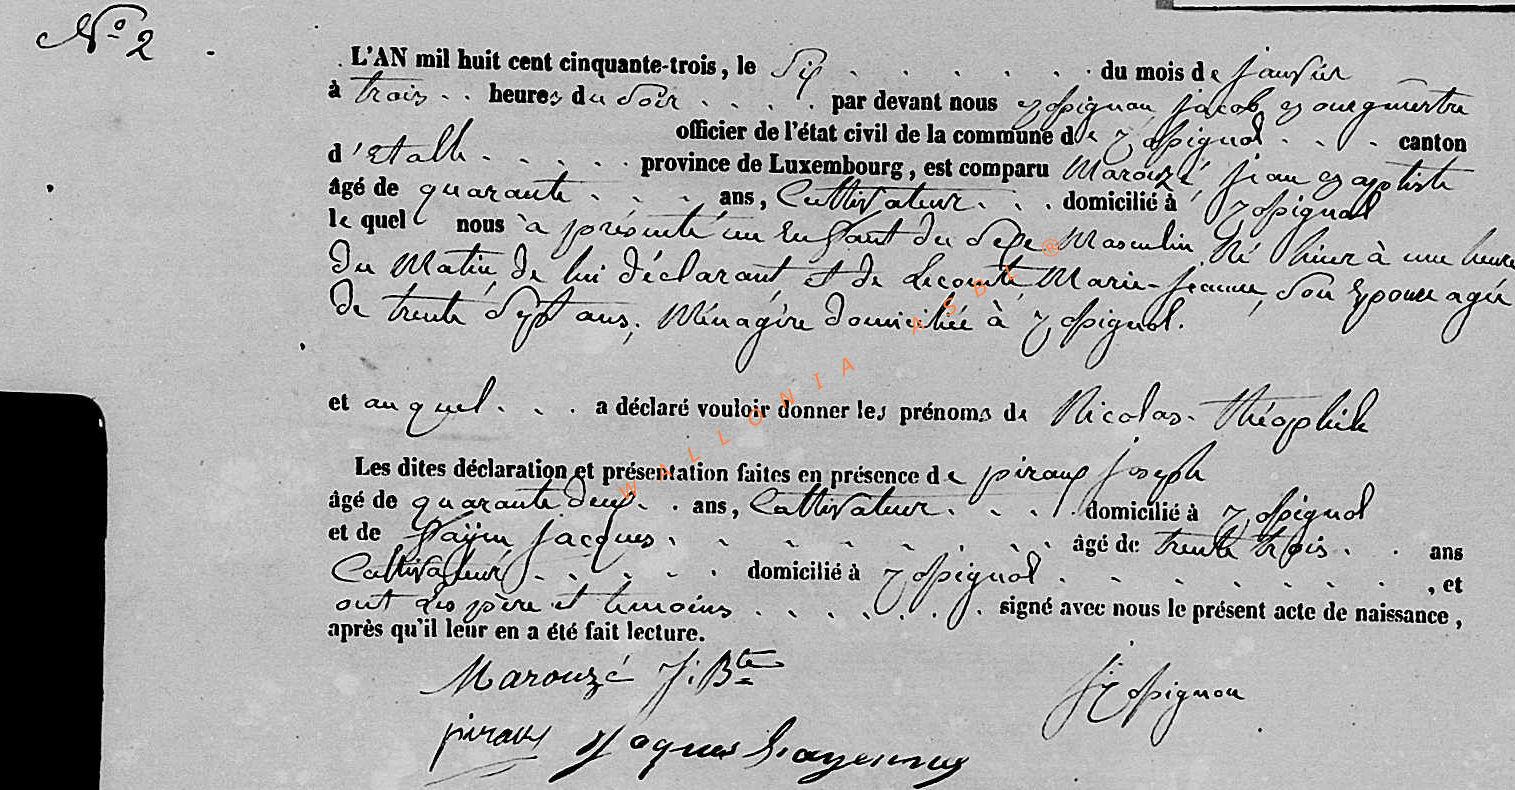 N° 2
L'AN mil huit cent cinquante-trois, le Six du mois de Janvier
à trois heures du Soir par devant nous Rossignon Jacob Bourgmestre
officier de l'état civil de la commune de Rossignol canton
d'Etalle province de Luxembourg, est comparu Marouzé, Jean Baptiste
âgé de quarante ans, Cultivateur domicilié à Rossignol
le quel nous à présenté un Enfant du Sexe Masculin Né hier à une heure
du Matin, de lui déclarant et de Lecomte Marie-Jeanne, Son Epouse agée
de trente Sept ans, Ménagère domiciliée à Rossignol.
et auquel a déclaré vouloir donner les prénoms de Nicolas-Théophile
Les dites déclaration et présentation faites en présence de piraux Joseph
âgé de quarante deux ans, Cultivateur domicilié à Rossignol
et de Jacques âgé de trente trois ans
Cultivateur domicilié à Rossignol, et
ont Les père et temoins signé avec nous le présent acte de naissance,
après qu'il leur en a été fait lecture.
Marouzé J. Bte
Rossignon
piraux Jaques
WALLONIA ASBL ®